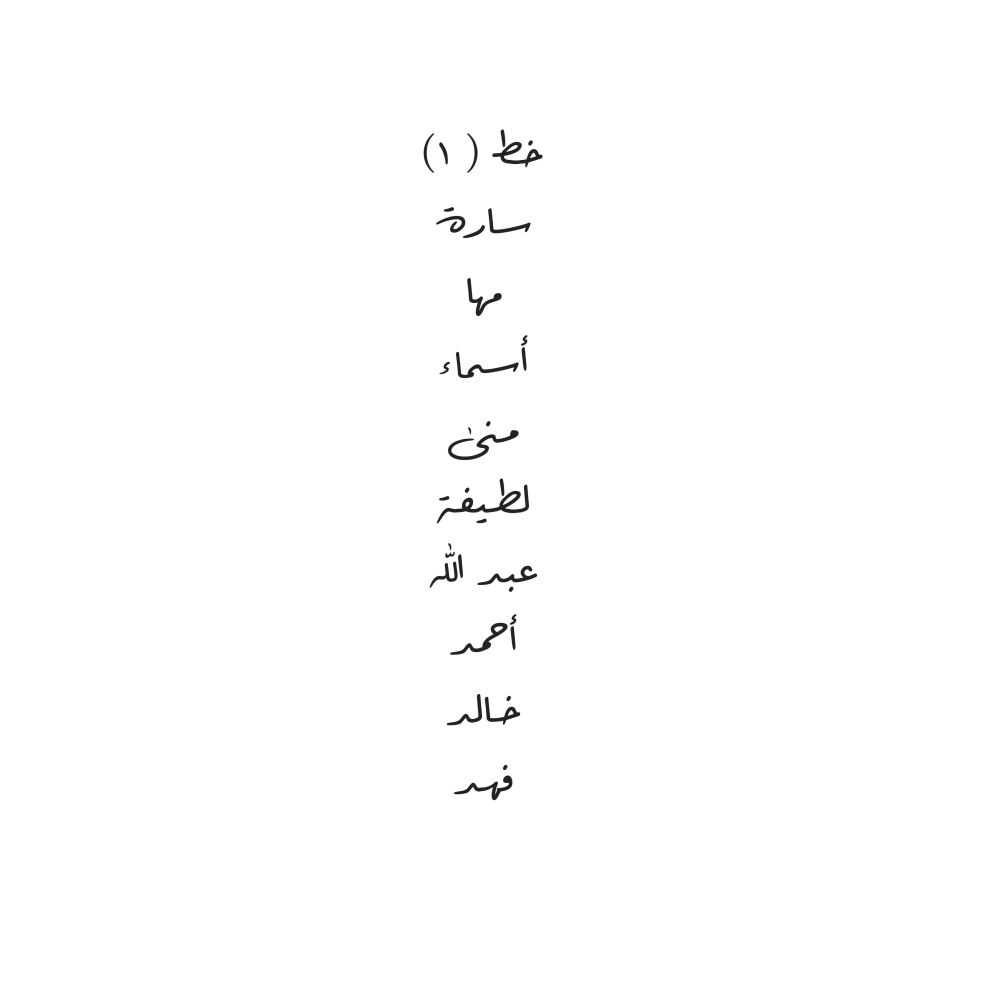 خط ( ١)
سارة
مها
أسماء
منىٰ
لطيفة
عبد اللّٰه
أحمد
خالد
فهد